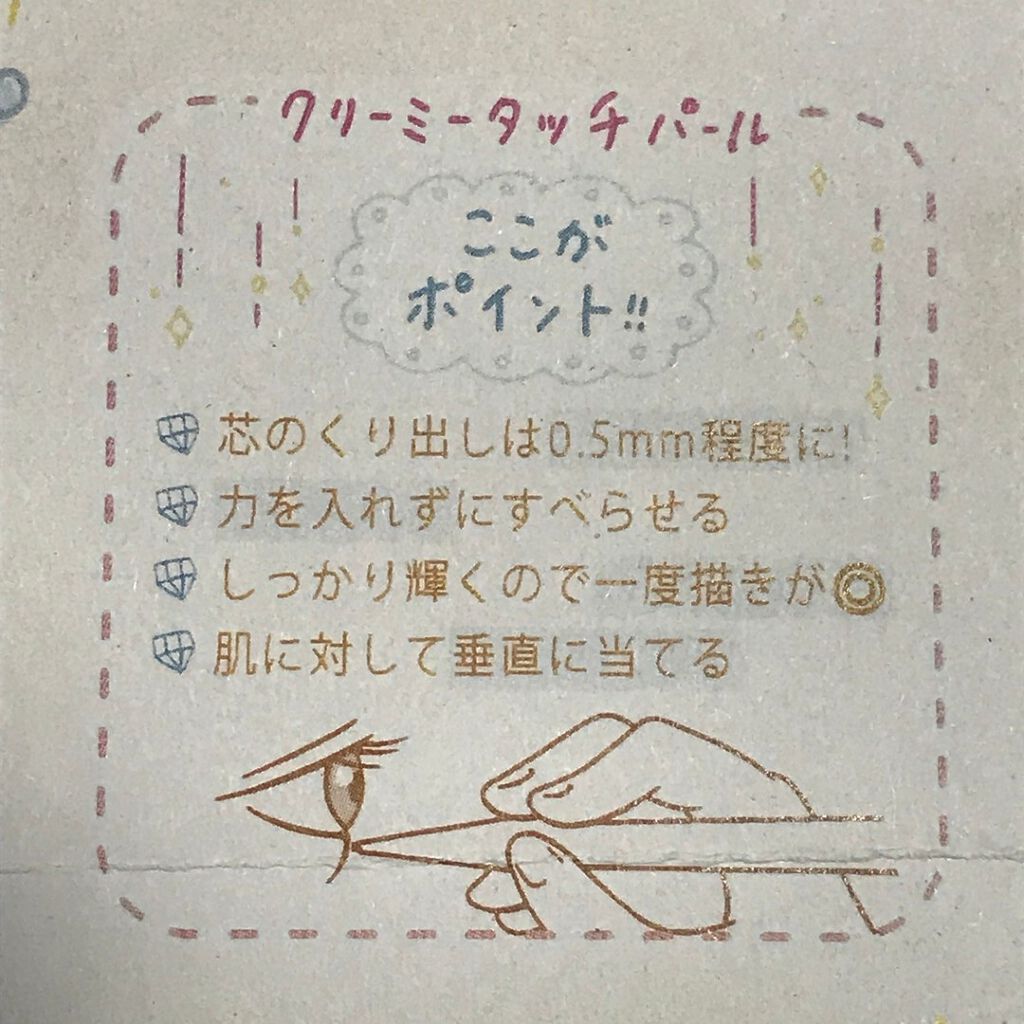 クリーミータッチパール
ここが
ポイント!!
芯のくり出しは0.5mm程度に!
力を入れずにすべらせる
しっかり輝くので一度描きが◎
肌に対して垂直に当てる